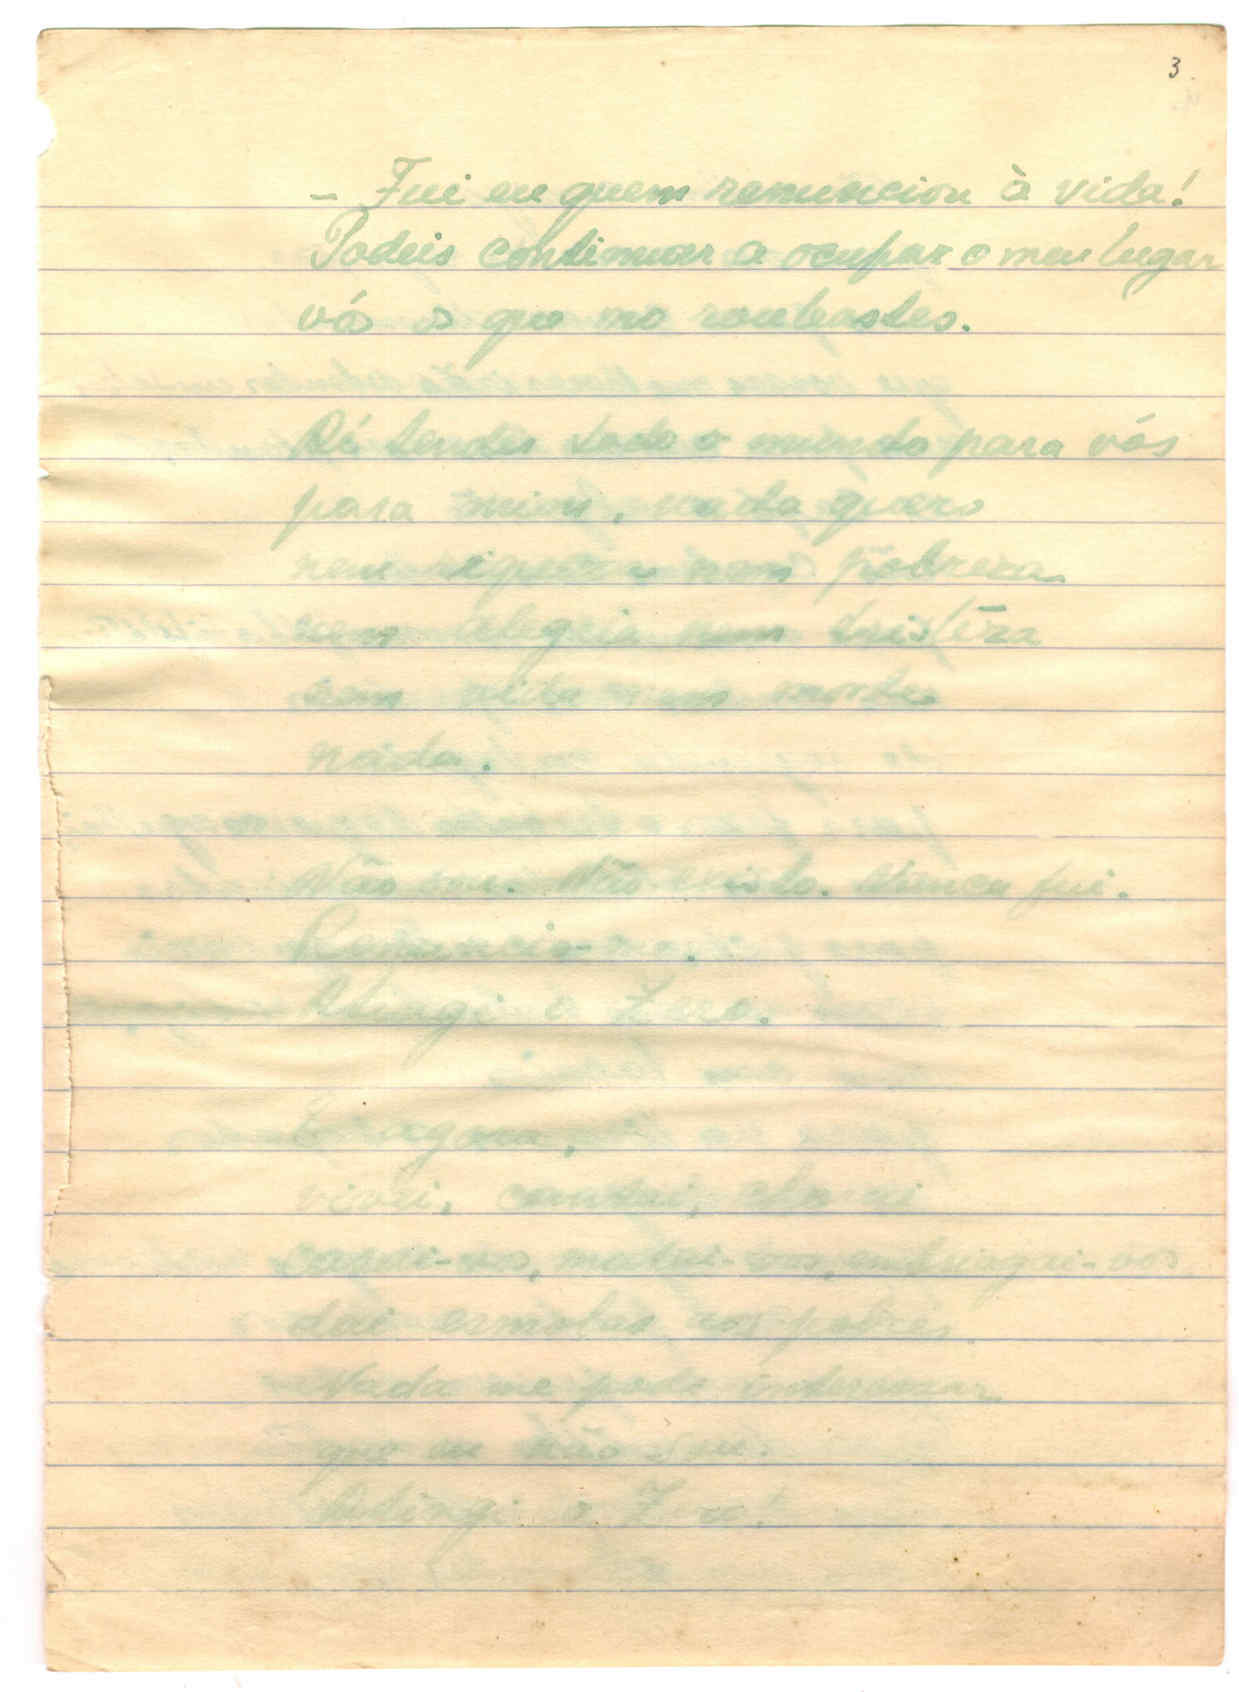 3
– Fui eu quem renunciou à vida!
Podeis continuar a ocupar o meu lugar
vós os que mo roubastes.
Aí tendes todo o mundo para vós
para mim, nada quero
nem riqueza nem pobreza
nem alegria nem tristeza
nem vida nem morte
nada.
Não sou. Não existo. Nunca fui.
Renunciei-me.
Atingi o Zero.
E agora,
vivei, cantai, chorai
casai-vos, matai-vos, embriagai-vos
dai esmolas aos pobres.
Nada me pode interessar
que eu não sou.
Atingi o Zero!